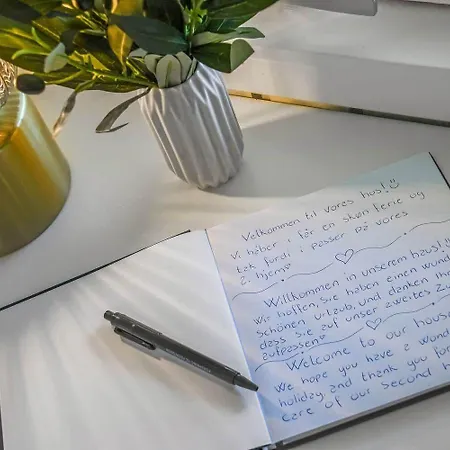 Velkommen til vores hus! ☺
Vi håber i får en skøn ferie og
tak fordi i passer på vores
2. hjem♡
Willkommen in unserem haus! ☺
Wir hoffen, Sie haben einen
schönen urlaub, und danken
dass sie auf unser zweites
aufpassen♡
Welcome to our
We hope you have a
holiday, and thank you
care of our second